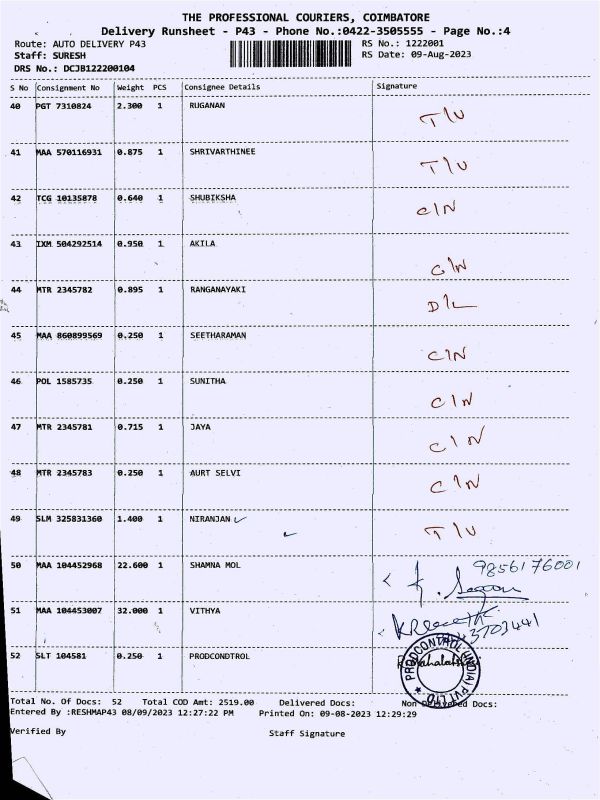 THE PROFESSIONAL COURIERS, COIMBATORE
Delivery Runsheet - P43 - Phone No.:0422-3505555 - Page No.:4
Route: AUTO DELIVERY P43 RS No.: 1222001
Staff: SURESH RS Date: 09-Aug-2023
DRS No.: DCJB122200104
S No Consignment No Weight PCS Consignee Details Signature
40 PGT 7310824 2.300 1 RUGANAN T/U
41 MAA 570116931 0.875 1 SHRIVARTHINEE T/U
42 TCG 10135878 0.640 1 SHUBIKSHA C/N
43 IXM 504292514 0.950 1 AKILA C/N
44 MTR 2345782 0.895 1 RANGANAYAKI D/L
45 MAA 860899569 0.250 1 SEETHARAMAN C/N
46 POL 1585735 0.250 1 SUNITHA C/N
47 MTR 2345781 0.715 1 JAYA C/N
48 MTR 2345783 0.250 1 AURT SELVI C/N
49 SLM 325831360 1.400 1 NIRANJAN T/U
50 MAA 104452968 22.600 1 SHAMNA MOL 9856176001
51 MAA 104453007 32.000 1 VITHYA
52 SLT 104581 0.250 1 PRODCONDTROL PRODCONTROL (INDIA) PVT LTD
Total No. Of Docs: 52 Total COD Amt: 2519.00 Delivered Docs: Non Delivered Docs:
Entered By :RESHMAP43 08/09/2023 12:27:22 PM Printed On: 09-08-2023 12:29:29
Verified By Staff Signature